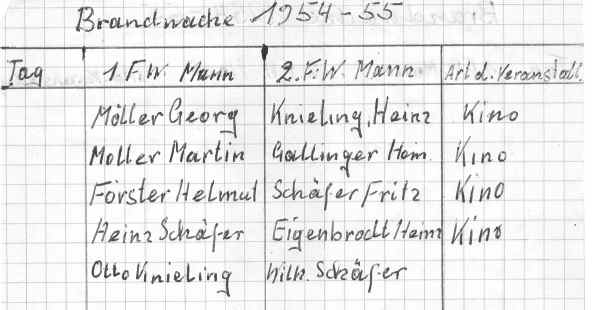 Brandwache 1954-55
Tag 1 F.W. Mann 2. F.W. Mann Art d. Veranstalt.
Möller Georg Knieling, Heinz Kino
Moller Martin Gallinger Kino
Förster Helmut Schäfer Fritz Kino
Heinz Schäfer Eigenbrodt Heinz Kino
Otto Knieling Wilh. Schäfer